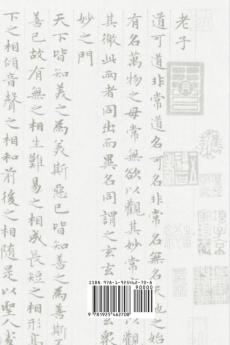 老子
道可道非常道名可名非常名無名天地之始
有名萬物之母常無欲以觀其妙常
其徼此兩者同出而異名同謂之玄玄
妙之門
天下皆知美之為美斯惡已皆知善之為善斯
善已故有無之相生難易之相成長短之相形高
下之相傾音聲之相和前後之相隨是以聖人處
ISBN 978-1-925462-70-8
90000
9 781925 462708